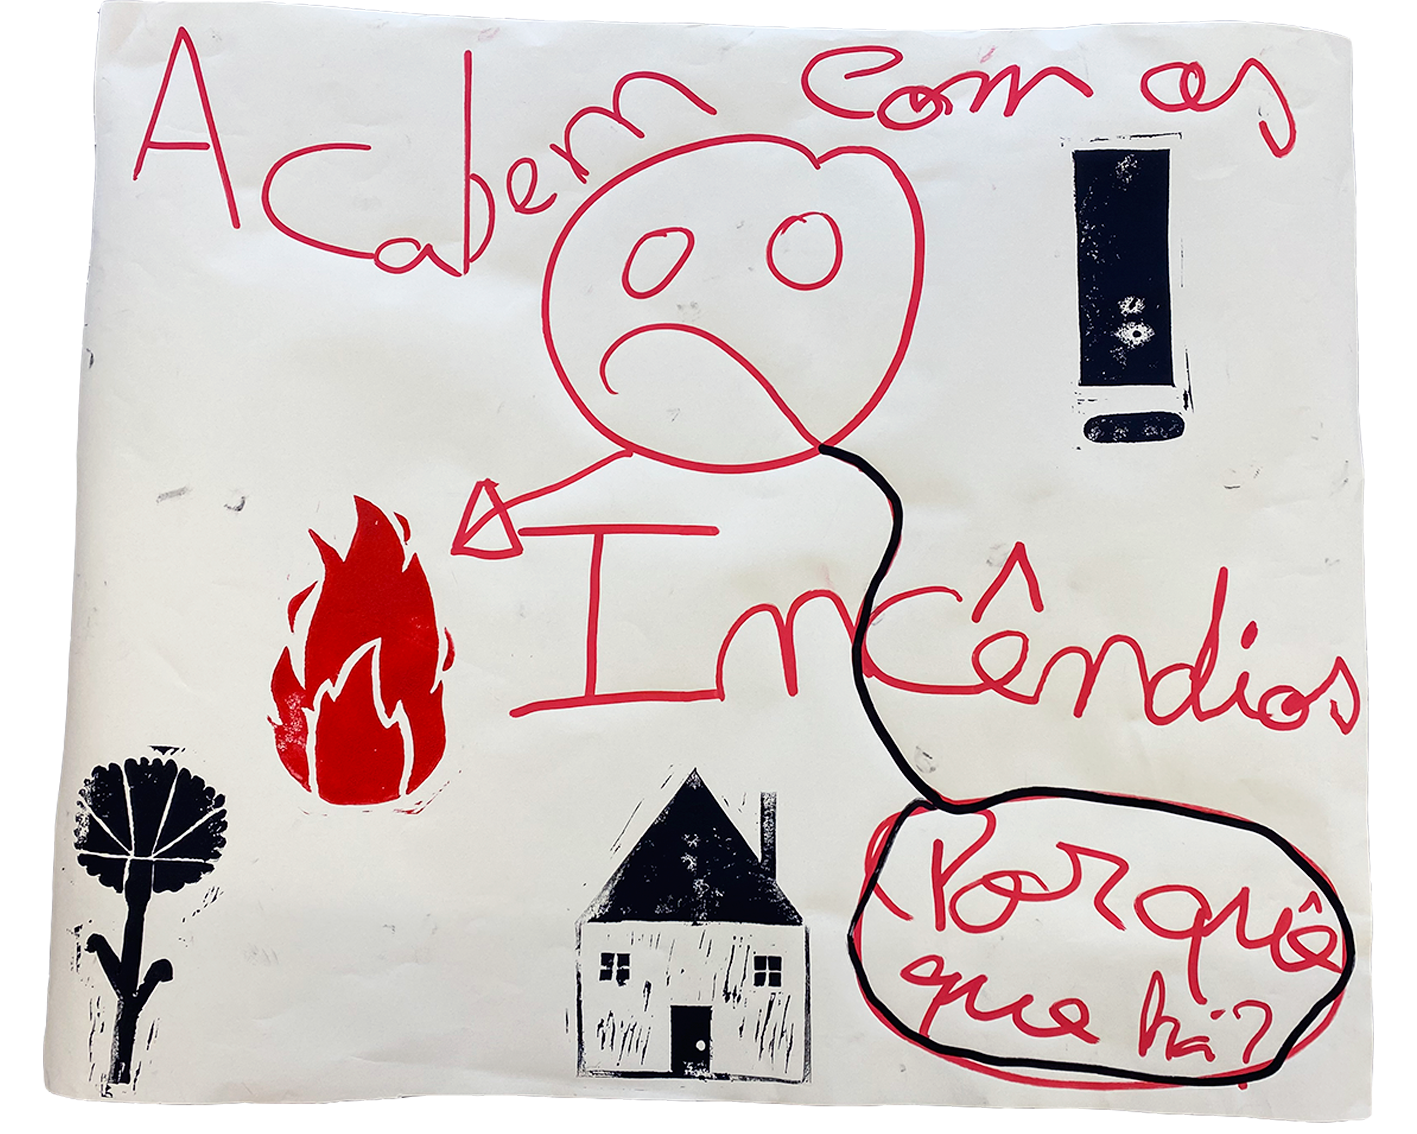 Acabem com os
Incêndios
Porquê
que há?